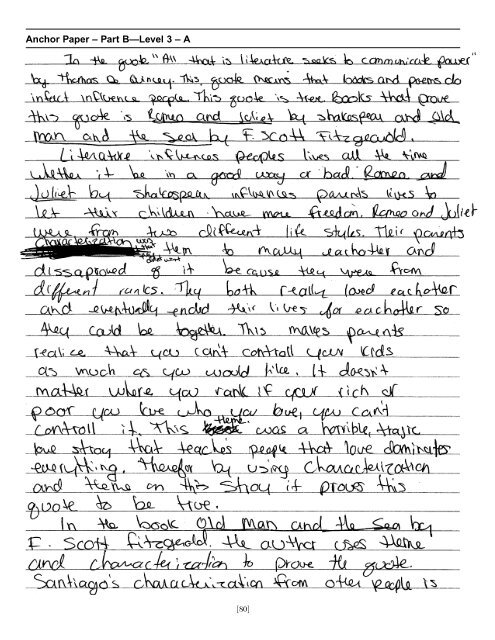 Anchor Paper – Part B—Level 3 – A
In the quote "All that is literature seeks to communicate power"
by Thomas De Quincey. This, quote means that books and poems do
infact influence people. This quote is tree Books that prove
this quote is Romeo and Juliet by shakespear and Old
man and the sea by F. Scott Fitzgeradd.
Literature influences peoples lives all the time
whether it be in a good way or bad. Romeo and
Juliet by shakespear influences parents lives to
let their children have more freedom. Romeo and Juliet
were from two different life styles. Their parents
Characterization was that didnt want them to marry eachother and
dissaproved of it because they were from
different ranks. They both really loved eachother
and eventually ended their lives for eachother so
they could be together. This makes parents
realize that you can't controll your kids
as much as you would like. It doesn't
matter where you rank if your rich or
poor you love who you love, you can't
controll it. This theme was a horrible, trajic
love stroy that teaches people that love dominates
everything. Therefor by using Characterization
and theme on this stroy it proves this
quote to be true.
In the book Old Man and the Sea by
F. Scott fitzgerald. the author uses theme
and characterization to prove the quote.
Santiago's characterization from other people is
[80]